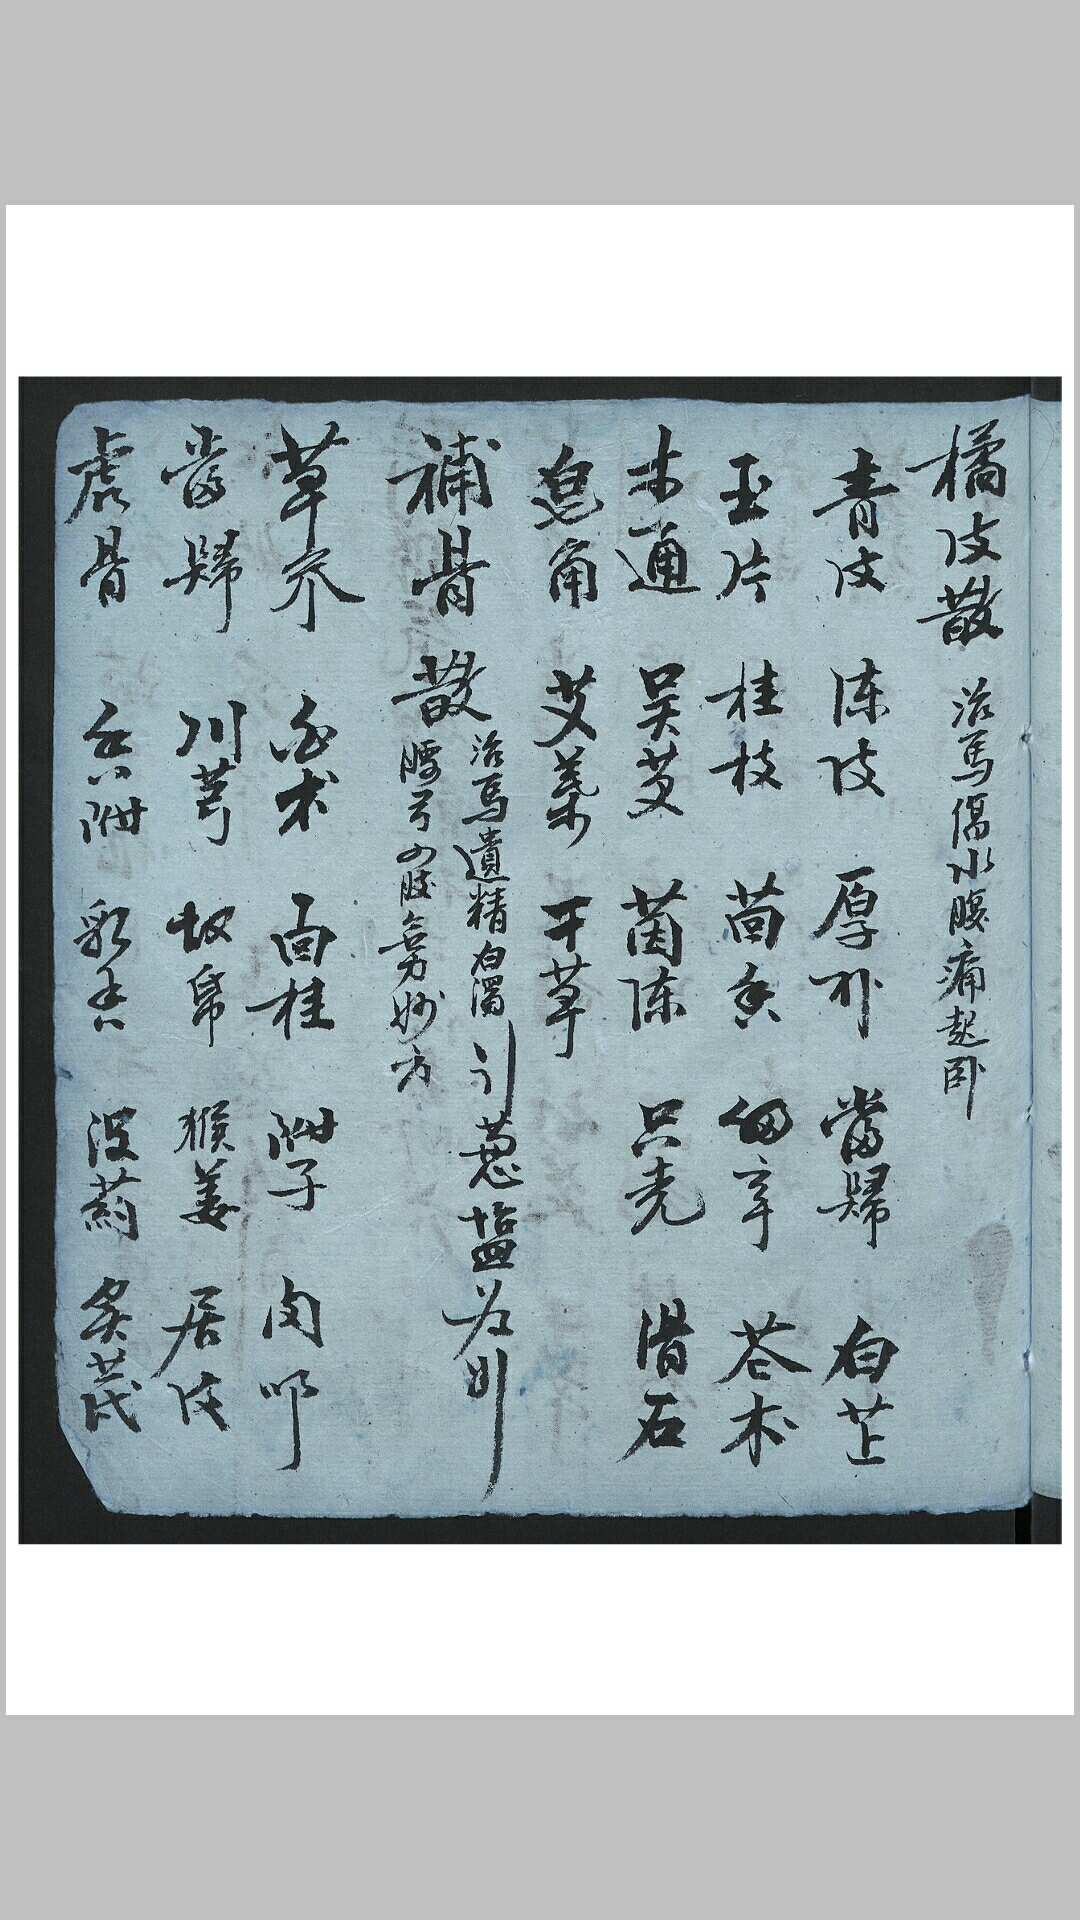 橘皮散 治馬傷水腹痛起卧
青皮 陈皮 厚朴 當歸 白芷
玉片 桂枝 茴香 细辛 苍术
木通 吴萸 茵陈 只壳 滑石
皂角 艾葉 干草
補骨散
治馬遺精白濁 引葱塩為引
腰 妙方
草 白术 面桂 附子 肉
當歸 川芎 故帋 猴姜 居皮
虎骨 香附 乳香 没药 炙芪